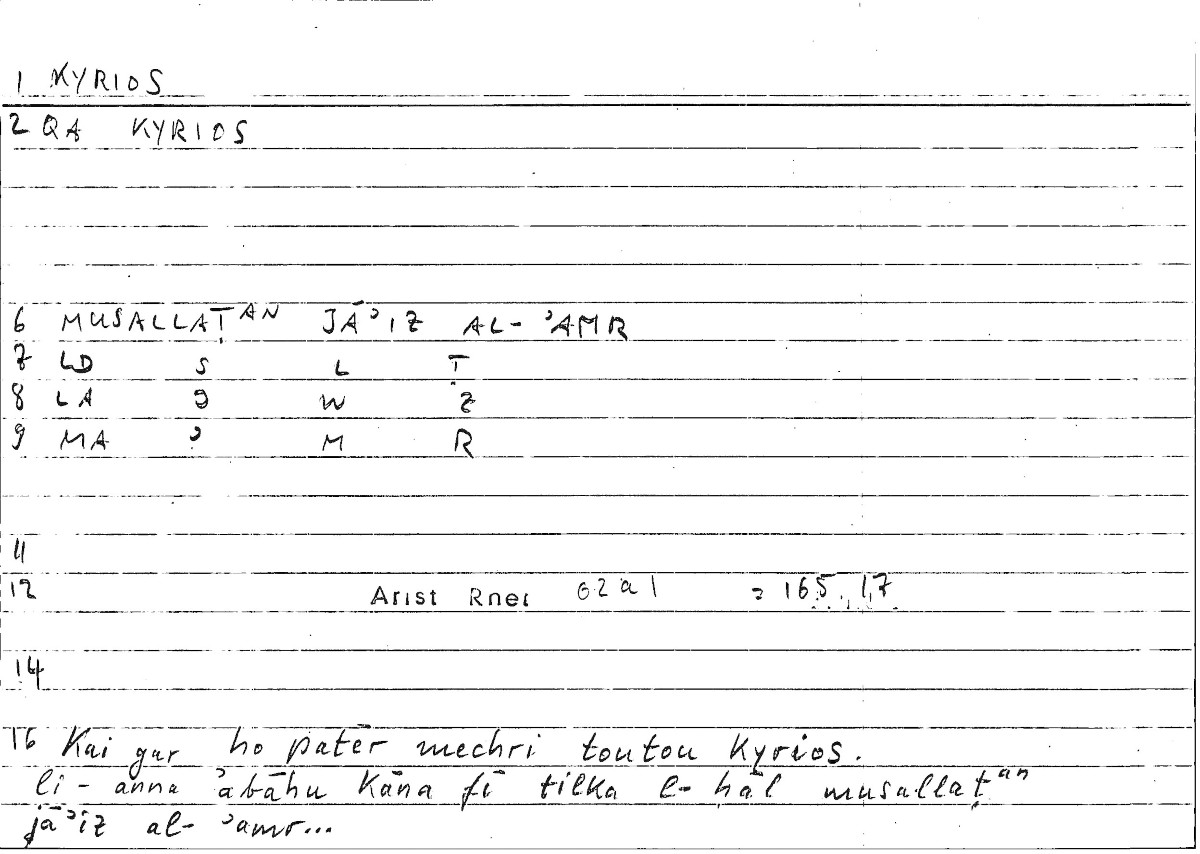 1 KYRIOS
2 QA KYRIOS
6 MUSALLAṬAN JĀʾIZ AL-ʾAMR
7 LD S L Ṭ
8 LA G W Z
9 MA ʾ M R
11
12 Arist Rhet 62a1 = 165,17
14
16 Kai gar ho patēr mechri toutou Kyrios.
li-anna ʾabāhu Kāna fī tilka l-ḥāl musallaṭan
jāʾiz al-ʾamr...